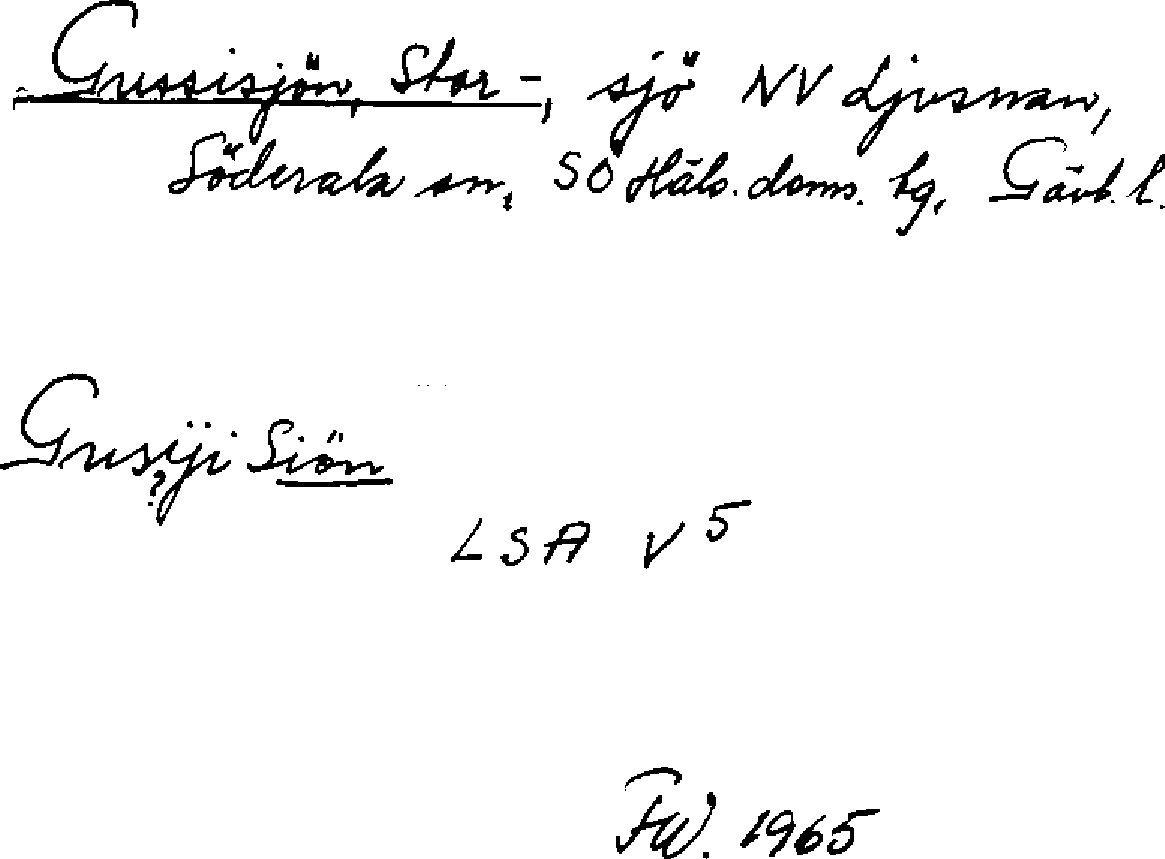 Gussisjön, Stor-, sjö NV Ljusnan,
Söderala sn, SÖ Häls. doms. tg, Gävl. l.
Gusÿji Siön
?
LSA V 5
FW. 1965